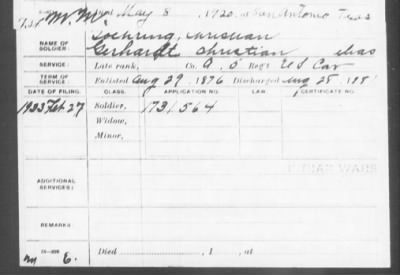 May 8, 1920, at San Antonio Texas
734 M. M.
NAME OF SOLDIER: Goehring, Christian
Gerhardt Christian alias
SERVICE: Late rank, Co. A. 5 Regt U S Cav
TERM OF SERVICE: Enlisted Aug 29, 1876 Discharged Aug 25, 1881
DATE OF FILING. CLASS. APPLICATION NO. LAW. CERTIFICATE NO.
1933 Feb 27 Soldier, 1731,564
Widow,
Minor,
INDIAN WARS
ADDITIONAL SERVICES:
REMARKS:
m E.
Died , 1 , at